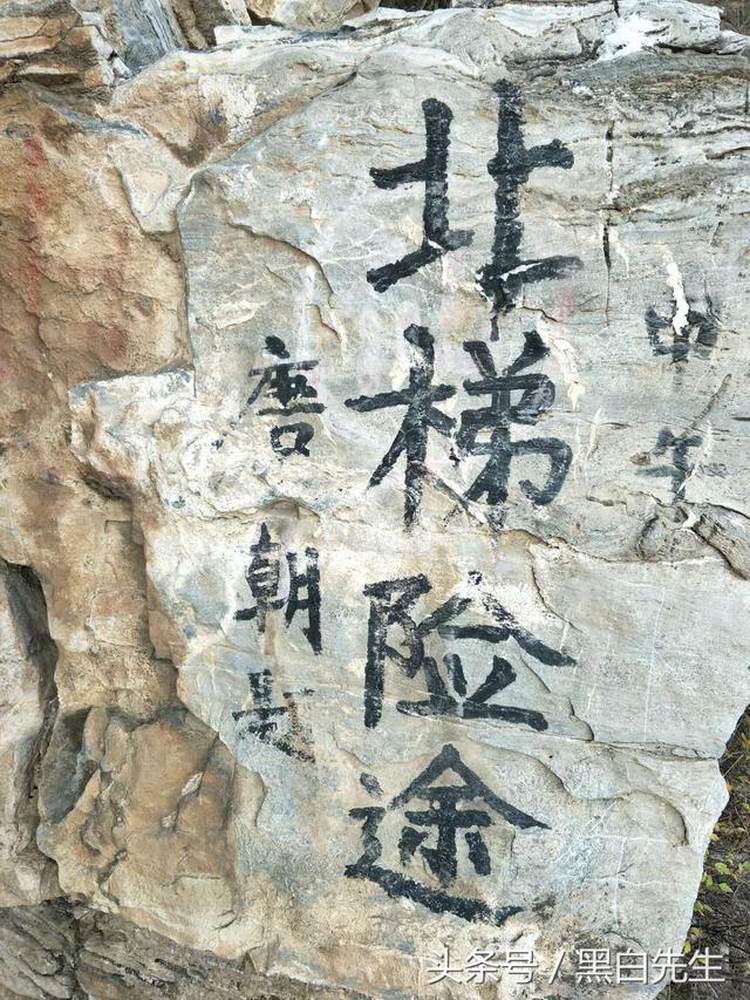 北梯险途
唐朝
午
头条号 / 黑白先生